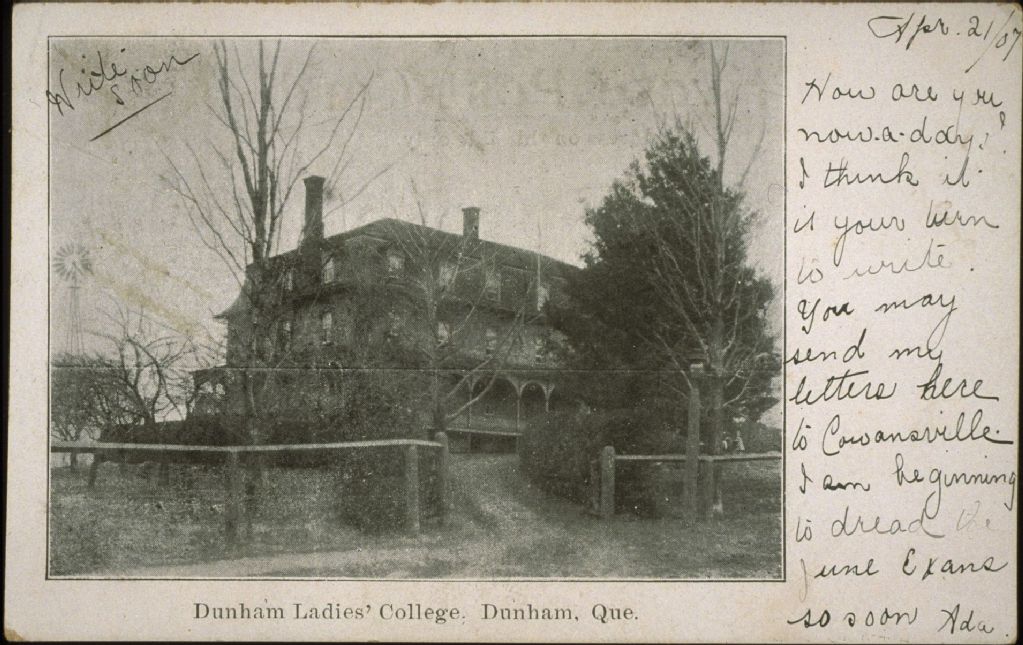 Write
soon
Apr. 21/07
How are you
now-a-days?
I think it
is your turn
to write.
You may
send my
letters here
to Cowansville.
I am beginning
to dread the
June Exans
so soon Ada.
Dunham Ladies' College, Dunham, Que.